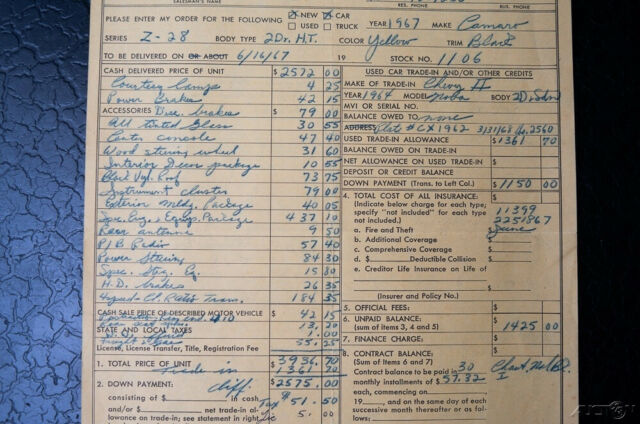 SALESMAN'S NAME
RES. PHONE
BUS. PHONE
PLEASE ENTER MY ORDER FOR THE FOLLOWING ☒ NEW ☒ CAR
☐ USED ☐ TRUCK
YEAR 1967 MAKE Camaro
SERIES Z-28 BODY TYPE 2Dr. H.T. COLOR Yellow TRIM Black
TO BE DELIVERED ON OR ABOUT 6/16/67 19 STOCK NO. 1106
CASH DELIVERED PRICE OF UNIT $ 2572 00
Courtesy Lamps 4 25
Power Brakes 42 15
ACCESSORIES Disc. brakes 79 00
All tinted Glass 30 55
Center console 47 40
Wood steering wheel 31 60
Interior Decor package 10 55
Black Vyl. Roof 73 75
Instrument cluster 79 00
Exterior Mldg. Package 40 05
Spec. Eng. & Equip. Package 437 10
Rear antenna 9 50
P/B Radio 57 40
Power Steering 84 30
Spec. Strg. Eq. 15 80
H.D. brakes 26 35
184 35
CASH SALE PRICE OF DESCRIBED MOTOR VEHICLE $ 42 15
13.20
STATE AND LOCAL TAXES 1.00
55.25
License, License Transfer, Title, Registration Fee
1. TOTAL PRICE OF UNIT $ 3936.70
Trade in 1361 70
2. DOWN PAYMENT: diff. $2575.00
consisting of $ in cash Tax $ 51.50
and/or $ net trade-in al-
lowance on trade-in; see statement in right Lic 5.00
USED CAR TRADE-IN AND/OR OTHER CREDITS
MAKE OF TRADE-IN Chevy II
YEAR 1964 MODEL Nova BODY 2D. Sdn
MVI OR SERIAL NO.
BALANCE OWED TO none
ADDRESS Plate # CX 1962 3/31/68 2560
USED TRADE-IN ALLOWANCE $ 1361 70
BALANCE OWED ON TRADE-IN
NET ALLOWANCE ON USED TRADE-IN $
DEPOSIT OR CREDIT BALANCE
DOWN PAYMENT (Trans. to Left Col.) $ 1150 00
4. TOTAL COST OF ALL INSURANCE:
(Indicate below charge for each type;
specify "not included" for each type
not included.)
11399
2251867
a. Fire and Theft $ June
b. Additional Coverage $
c. Comprehensive Coverage $
d. $ Deductible Collision $
e. Creditor Life Insurance on Life of
$
(Insurer and Policy No.)
5. OFFICIAL FEES: $
6. UNPAID BALANCE:
(sum of items 3, 4 and 5) $ 1425 00
7. FINANCE CHARGE: $
8. CONTRACT BALANCE:
(Sum of Items 6 and 7) $
Contract balance to be paid in 30
monthly installments of $ 57.32
each, commencing on
19, and on the same day of each
successive month thereafter or as fol-
lows: